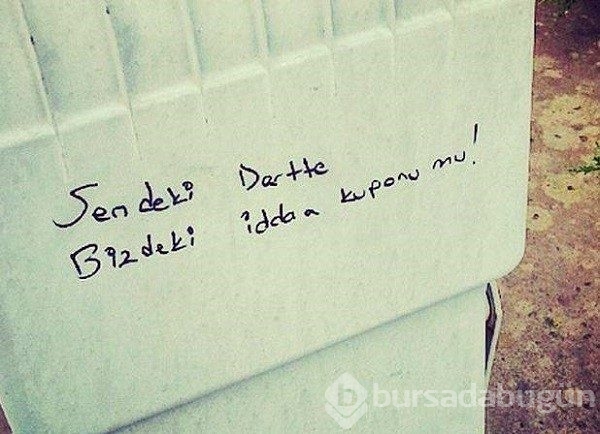 Sendeki Dartte
Bizdeki iddaa kuponu mu!
bursadabugün